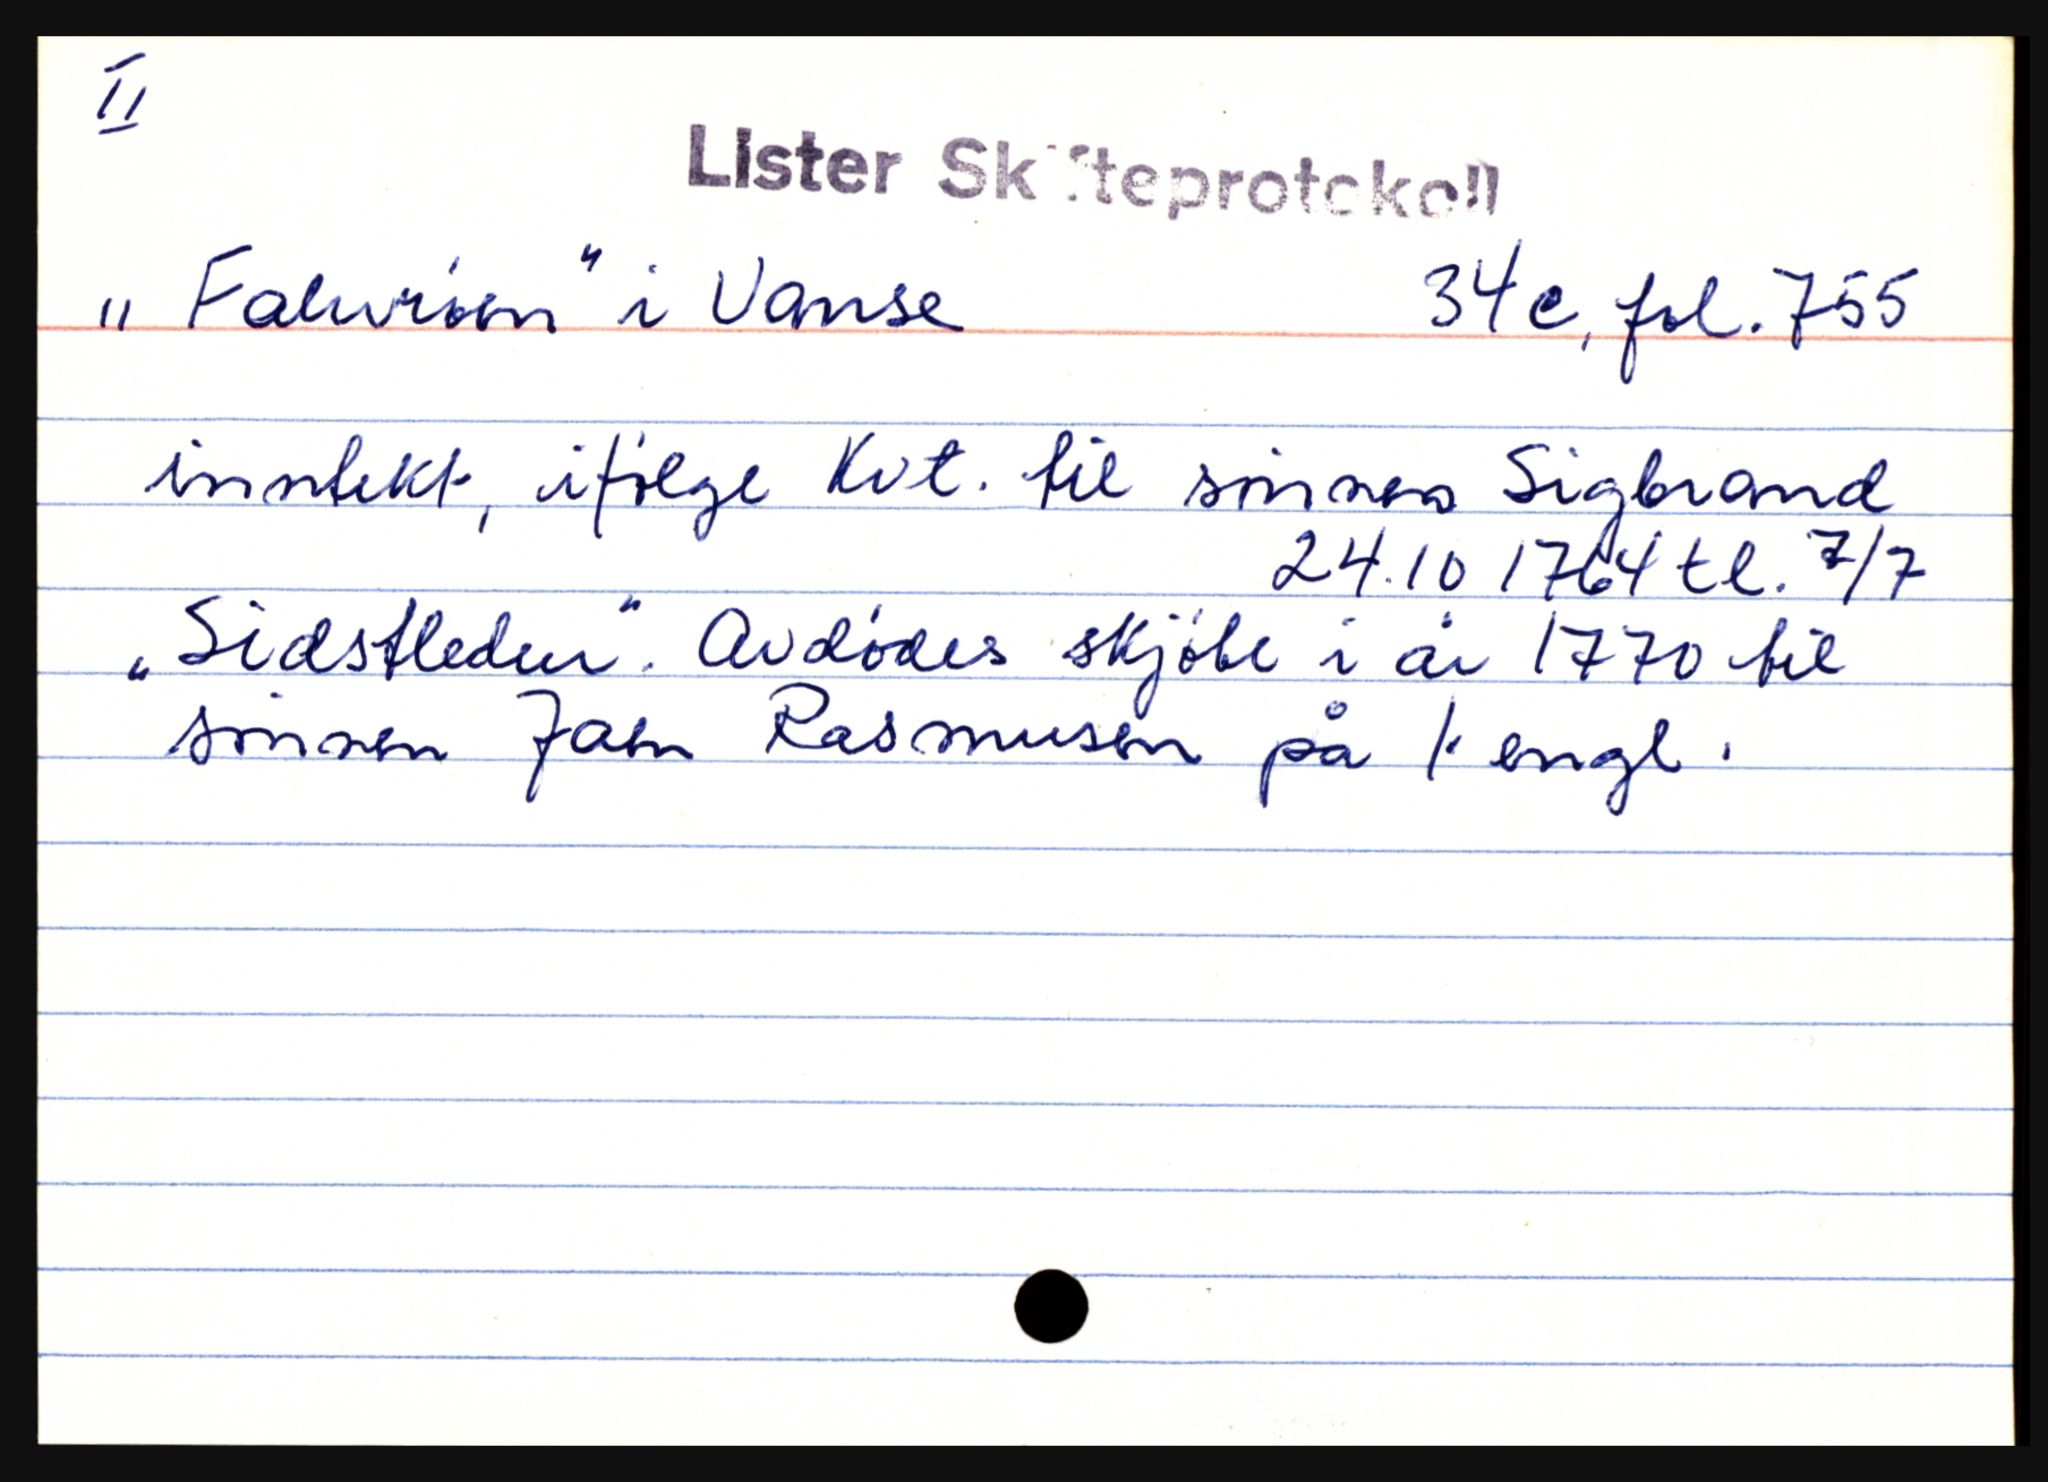 II
Lister Skifteprotokoll
„Falurióen" i Vanse 34c, fol. 755
inntekt, ifólge Kvt. til sónnen Sigbrand
24.10 1764 tl. 7/7
„Sidstleden". Avdódes skjóte i år 1770 til
sónnen Jaen Rasmusen på 1 engl.